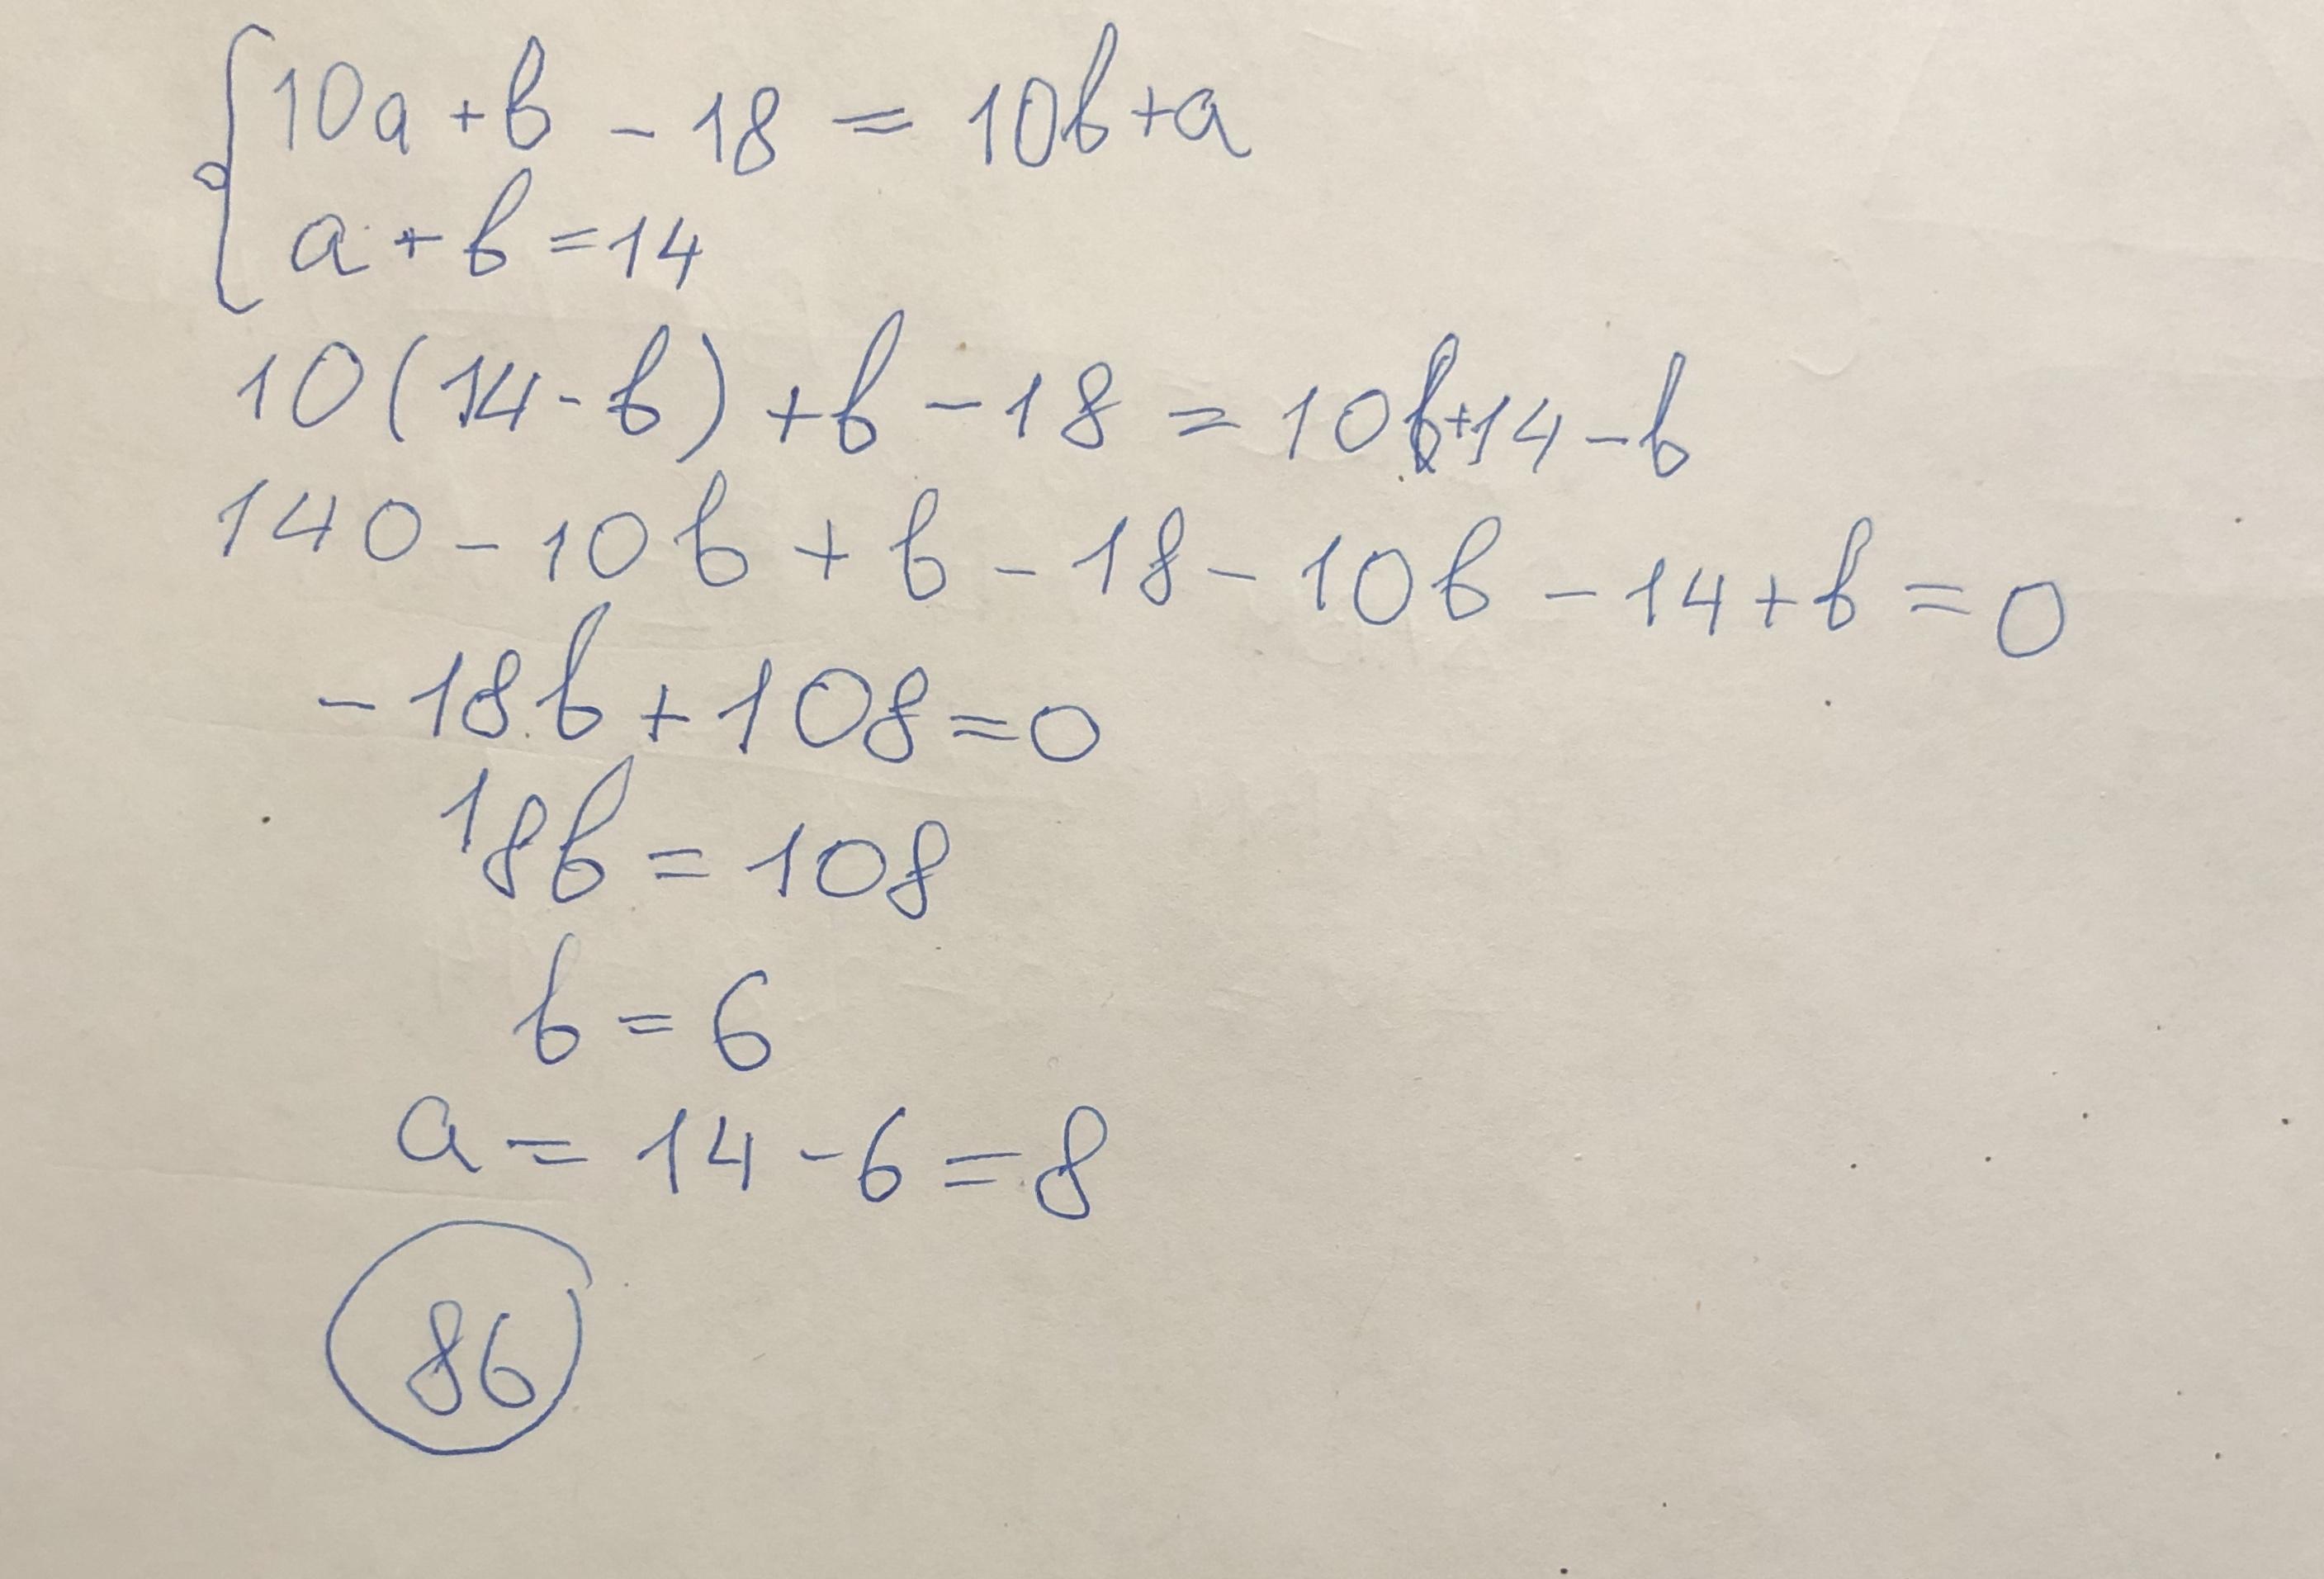 10a + b - 18 = 10b + a
a + b = 14
10(14 - b) + b - 18 = 10b + 14 - b
140 - 10b + b - 18 - 10b - 14 + b = 0
- 18b + 108 = 0
18b = 108
b = 6
a = 14 - 6 = 8
86